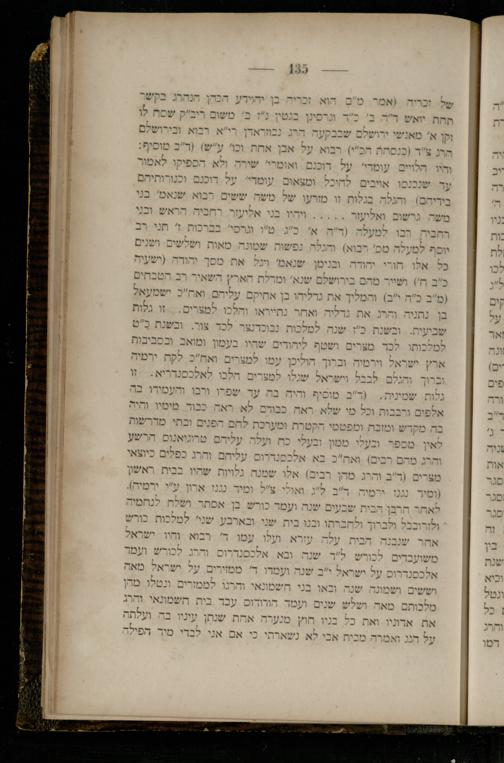 — 135 —
של זכריה (אמר ט"ם הוא זכריה בן יהוידע הכהן הנהרג בקשר
תחת יואש ד"ה ב' כ"ד וגרסינן בגטין נ"ז ב' משום ריב"ק שסח לו
זקן א' מאנשי ירושלם שבבקעה הרג נבוזראדן רי"א רבוא ובירושלם
הרג צ"ד (כנסחת הכ"י) רבוא על אבן אחת וכו' ע"ש) (ד"ב מוסיף:
והיו הלוים עומדי' על דוכנם ואומרי' שירה ולא הספיקו לאמור
עד שנכנסו אויבים להיכל ומצאום עומדי' על דוכנם וכנורותיהם
בידיהם) והגלה בגלות זו מזרעו של משה ששים רבוא שנאמ' בני
משה גרשום ואליעזר . . . . . ויהיו בני אליעזר רחביה הראש ובני
רחביה רבו למעלה (ד"ה א' כ"ג ט"ו וגרסי' בברכות ז' תני רב
יוסף למעלה מס' רבוא) והגלה נפשות שמונה מאות ושלשים ושנים
כל אלו חורי יהודה ובנימן שנאמ' ויגל את מסך יהודה (ישעיה
כ"ב ח') ושייר מהם בירושלם שנא' ומדלת הארץ השאיר רב הטבחים
(מ"ב כ"ה י"ב) והמליך את גדליהו בן אחיקם עליהם ואח"כ ישמעאל
בן נתניה והרג את גדליה ואחר נתייראו והלכו למצרים. זו גלות
שביעית. ובשנת כ"ז שנה למלכות נבוכדנצר לכד צור. ובשנת כ"ט
למלכותו לכד מצרים ושטף ליהודים שהיו בעמון ומואב ובסביבות
ארץ ישראל וירמיה וברוך הוליכן עמו למצרים ואח"כ לקח ירמיה
וברוך והגלם לבבל וישראל שגלו למצרים הלכו לאלכסנדריא. זו
גלות שמינית. (ד"ב מוסיף והיה בה עד שפרו ורבו והעמידו בה
אלפים ורבבות וכל מי שלא ראה כבודם לא ראה כבוד מימיו והיה
בה מקדש ומזבח ומפטמי הקטרת ומערכת לחם הפנים ובתי מדרשות
לאין מספר ובעלי ממון ובעלי כח ועלה עליהם טרוגיאנוס הרשע
והרג מהם רבים) ואח"כ בא אלכסנדרוס עליהם והרג כפלים כיוצאי
מצרים (ד"ב והרג מהן רבים) אלו שמנה גלויות שהיו בבית ראשון
(ומיד נגנז ירמיה ד"ב ל"ג ואולי צ"ל ומיד נגנז ארון ע"י ירמיה).
לאחר חרבן הבית שבעים שנה ועמד כורש בן אסתר ושלח לנחמיה
ולזרובבל ולברוך ולחברתו ובנו בית שני ובארבע שני' למלכות כורש
אחר שנבנה הבית עלה עזרא ועלו עמו ד' רבוא והיו ישראל
משועבדים לכורש ל"ד שנה ובא אלכסנדרוס והרג לכורש ועמד
אלכסנדרוס על ישראל י"ב שנה ועמדו ד' ממזרים על ישראל מאה
וששים ושמונה שנה ובאו בני חשמונאי והרגו לממזרים ונטלו מהן
מלכותם מאה ושלש שנים ועמד הורודוס עבד בית חשמונאי והרג
את אדוניו ואת כל בניו חוץ מנערה אחת שנתן עיניו בה ועלתה
על הגג ואמרה מבית אבי לא נשארתי כי אם אני לבדי מיד הפילה